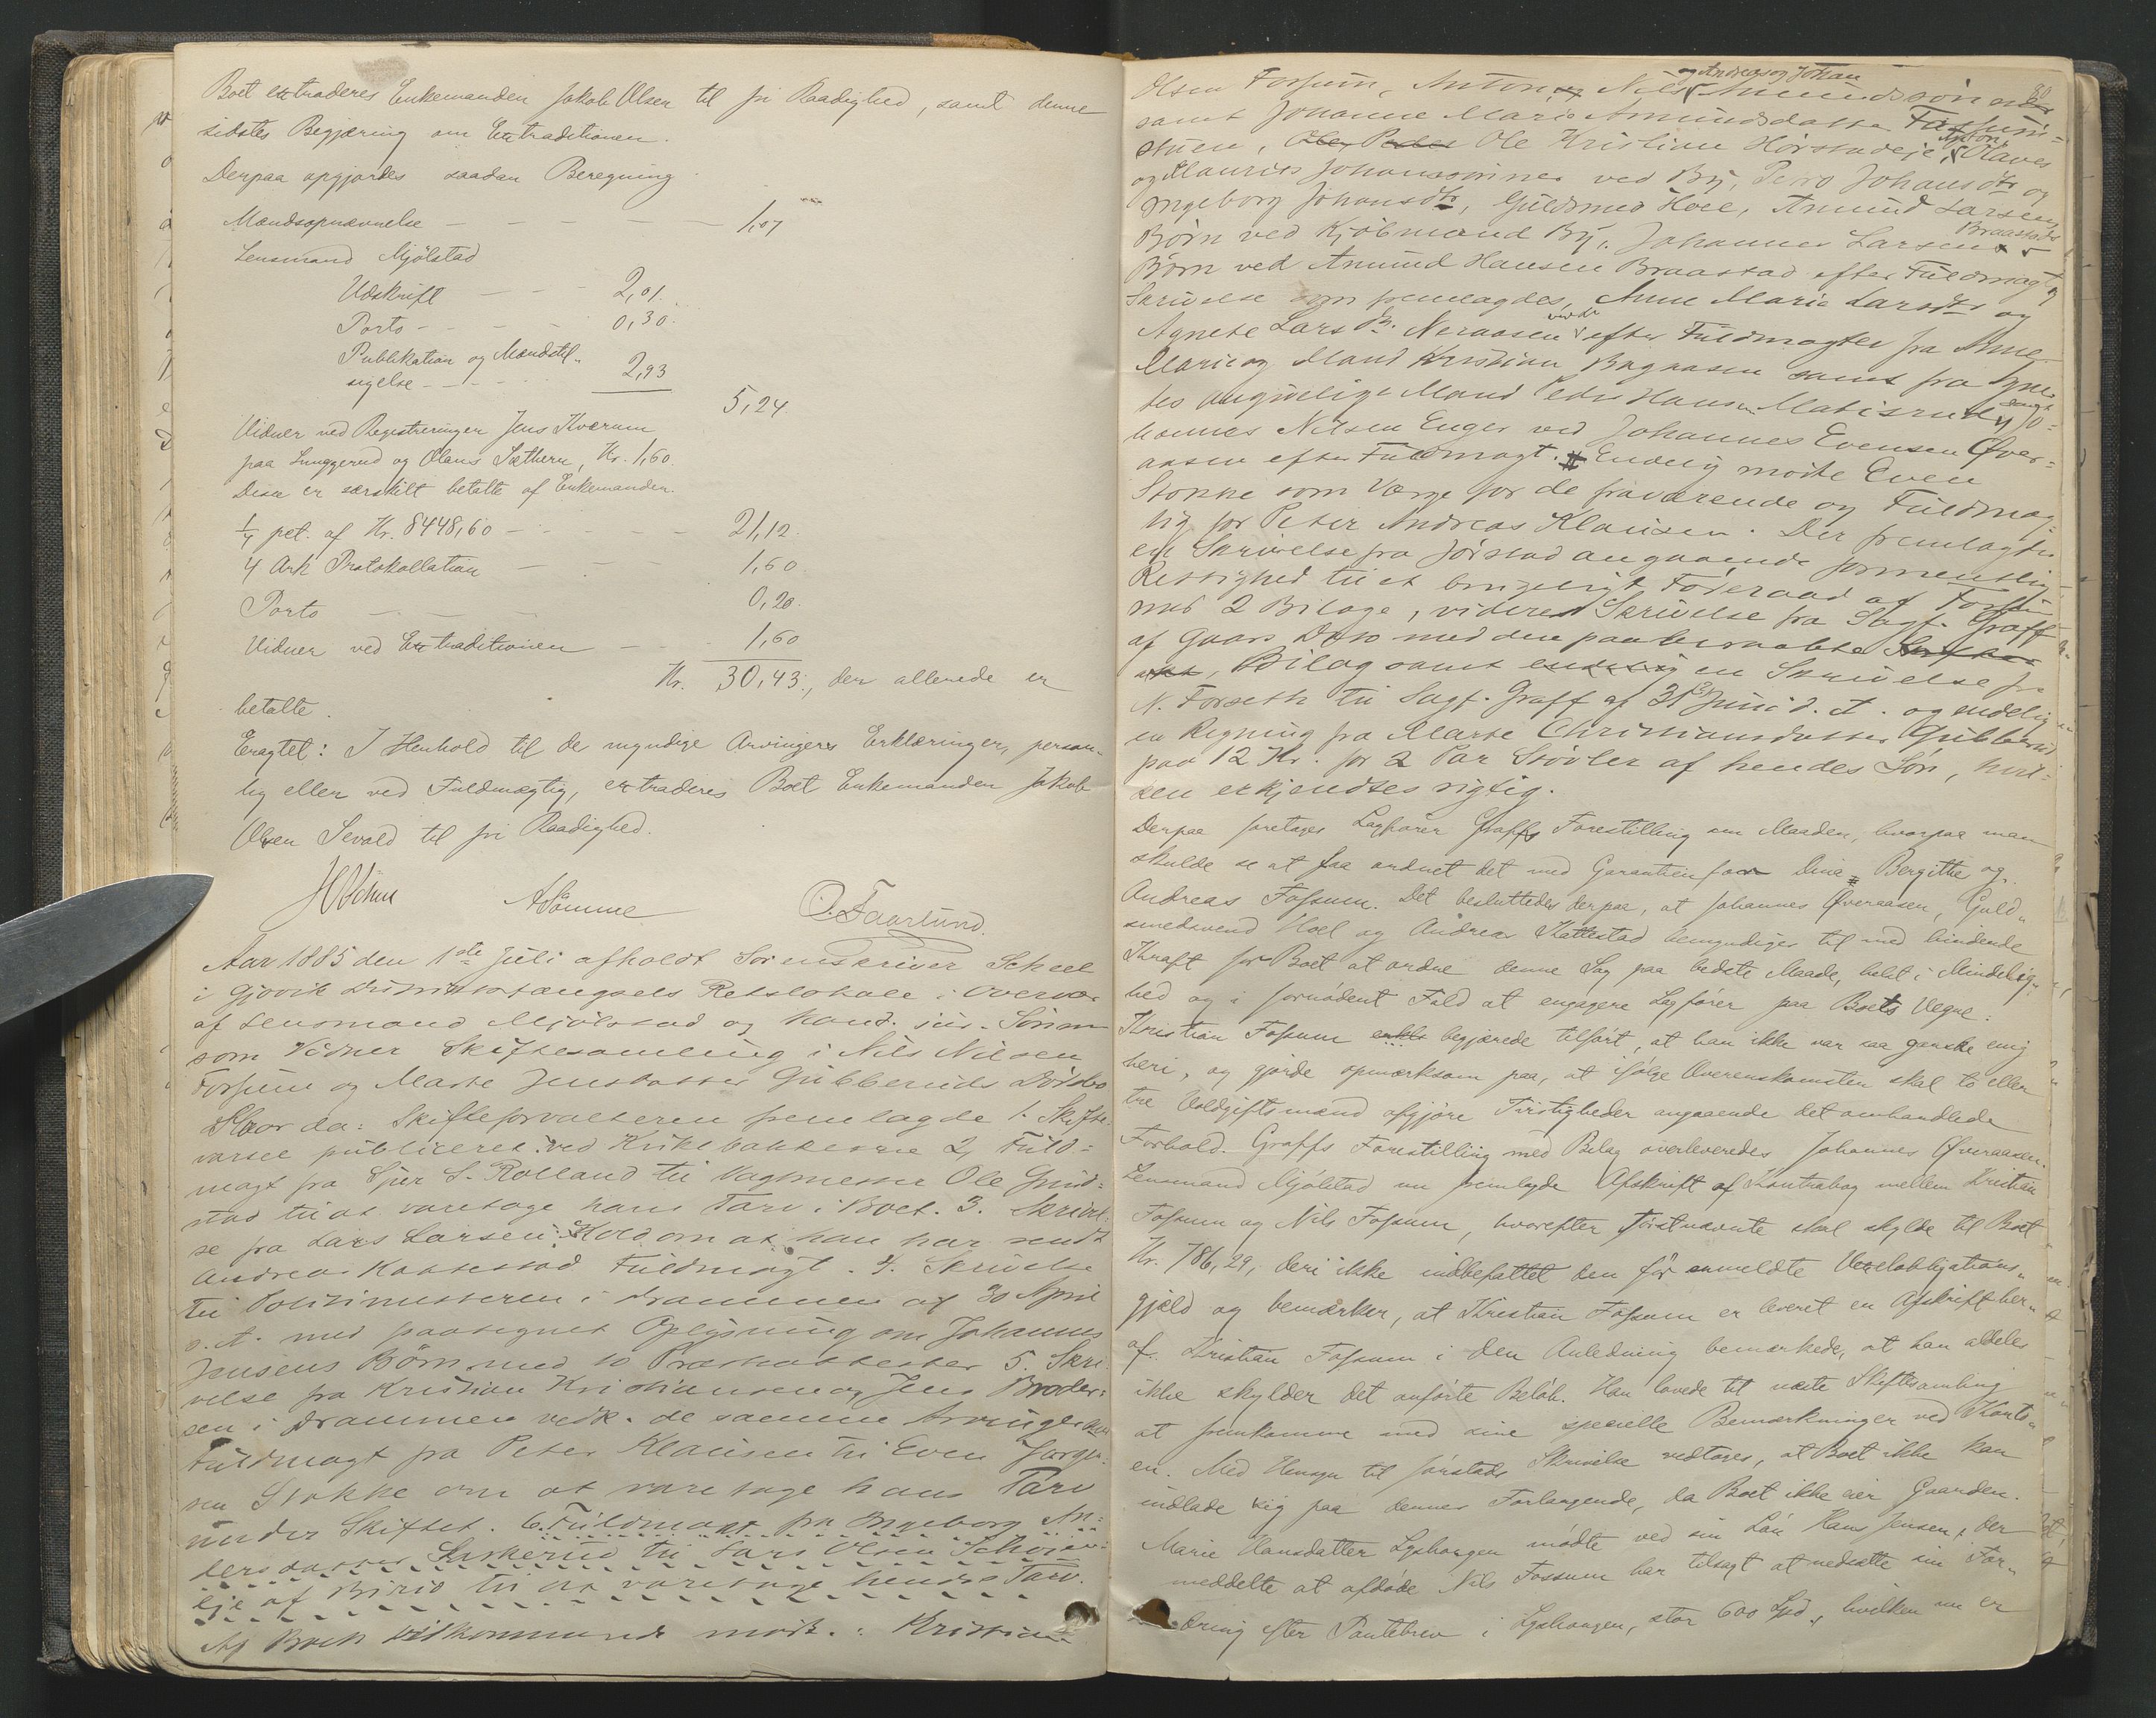 Boet extraderes Enkemanden Jakob Olsen til fri Raadighed, samt denne
sidstes Begjæring om Extraditionen.
Derpaa opgjordes saadan Beregning.
Mandsopnævnelse — — — 1,07
Lensmand Mjölstad
Udskrift — — 2,01.
Porto — — 0,30.
Publikation og Mandstil-
sigelse — — 2,93
5,24.
Vidner ved Registreringen Jens Kværum
paa Lunggerud og Olaus Sæthern, Kr. 1,60.
Disse er særskilt betalte af Enkemanden.
¼ pct. af Kr. 8448,60 — — — 21,12.
4 Ark Protokollation — — — 1,60.
Porto — — — 0,20.
Vidner ved Extraditionen — — 1,60
Kr. 30,43, der allerede er
betalte.
Eragtet: I Henhold til de myndige Arvingers Erklæringer, person-
lig eller ved Fuldmægtig, extraderes Boet Enkemanden Jakob
Olsen Sevald til fri Raadighed.
A Sömme O. Faarlund.
Aar 1885 den 1ste Juli afholdt Sorenskriver Scheel
i Gjövik Distriktsfængsels Retslokale i Overvær
af Lensmand Mjölstad og kand. jur. Sömme
som Vidner Skiftesamling i Nils Nilsen
Fossum og Marte Jensdatter Gubberuds Dödsbo
Hvorda: Skifteforvalteren fremlagde 1. Skifte-
varsel publiceret ved Kirkebakkerne 2, Fuld-
magt fra S. Rolland til Vagtmester Ole Grind-
stad til at varetage hans Tarv i Boet. 3. Skrivel-
se fra Lars Larsen Hold om at han har sendt
Andreas Kattestad Fuldmagt. 4. Skrivelse
til Politimesteren i Drammen af 30 April
d. A. med paategnet Oplysning om Johannes
Jensens Börn med 10 Præsteattester 5. Skri-
velse fra Kristian Kristiansen og Jens Broder-
sen i Drammen vedk. de samme Arvinger
Fuldmagt fra Peter Klausen til Even Jörgen-
sen Stokke om at varetage hans Tarv
under Skiftet. 6. Fuldmagt fra Ingeborg An-
dersdatter til Lars Olsen
eje af Birid til at varetage hendes Tarv.
Af Boets Vedkommende mödte: Kristian
80
og Andreas og Johan
Olsen Fossum, Anton, Nils Amundssön
samt Johanne Marie Amundsdatter Fossum-
Anton,
stuen, Ole Peder Ole Kristian Hörstadeje, Olaves
og Maurits Johanssönner ved By, Johansdtr og
Ingeborg Johansdtr, Guldsmed Hoel, Amund Larsen
Braastads
Börn ved Kjöbmand By, Johannes Larsens
Börn ved Amund Hansen Braastad efter Fuldmagt og
Skrivelse som fremlagdes, Anne Marie Larsdtr og
Agnete Larsdtr. Neraasen efter Fuldmagter fra Anne
Marie og Mand Kristian Bagaasen samt fra Agne-
tes angivelige Mand Peder Hansen samt Jo-
hannes Nilsen Enger ved Johannes Evensen Över-
aasen efter Fuldmagt. Endelig mödte Even
Stokke som Værge for de fraværende og Fuldmæg-
tig for Peter Andreas Klausen. Der fremlagdes
en Skrivelse fra Jörstad angaaende formentlig
Rettighed til et Föderaad af Fossum
med 2 Bilage, videre Skrivelse fra Sagf. Graff
af Gaars Dato med den paaberaabte
Bilag samt endelig en Skrivelse fra
N. Forseth til Sagf. Graff af 31 Juni d. A. og endelig
en Regning fra Marte Christiansdatter Gubberud
paa 12 Kr. for 2 Par Stövler af hendes Sön, hvil-
sen erkjendtes rigtig.
Derpaa foretages Sagförer Graffs Forestilling om Maaden, hvorpaa man
skulde se at faa ordnet det med Garantien for Dina Bergithe og
Andreas Fossum. Det besluttedes derpaa, at Johannes Överaasen, Guld-
smedsvend Hoel og Andreas Kattestad bemyndiges til med bindende
Kraft for Boet at ordne denne Sag paa bedste Maade, helst i Mindelig-
hed og i fornödent Fald at engagere Sagförer paa Boets Vegne.
Kristian Fossum begjærede tilfört, at han ikke var saa ganske enig
heri, og gjorde opmærksom paa, at ifölge Overenskomsten skal to eller
tre Voldgiftsmænd afgjöre Tvistigheder angaaende det omhandlede
Forhold. Graffs Forestilling med Bilag overleveredes Johannes Överaasen.
Lensmand Mjölstad nu fremlagde Afskrift af Kontrabog mellem Kristian
Fossum og Nils Fossum, hvorefter förstnævnte skal skylde til Boet
Kr. 786,29, deri ikke indbefattet den för anmeldte Vexelobligations-
gjæld og bemærker, at Kristian Fossum er leveret en Afskrift her-
af. Kristian Fossum i den Anledning bemærkede, at han aldeles
ikke skylder det anförte Belöb. Han lovede til næste Skiftesamling
at fremkomme med sine specielle Bemærkninger ved Konto-
en. Med Hensyn til Jörstads Skrivelse vedtoges, at Boet ikke kan
indlade sig paa dennes Forlangende, da Boet ikke eier Gaarden.
Marie Hansdatter Lyshaugen mödte ved sin Sön Hans Jensen, der
meddelte at afdöde Nils Fossum har tilsagt at nedsætte sin For-
dring efter Pantebrev i Lyshaugen, stor 600 Spd., hvilken nu er